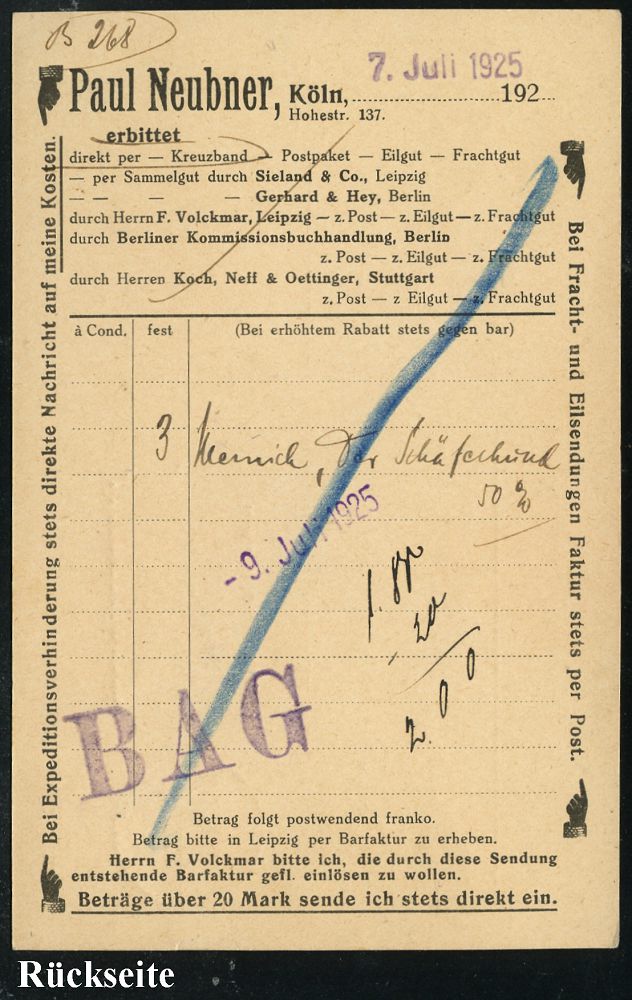 B 268
7. Juli 1925
Paul Neubner, Köln, 192
Hohestr. 137.
erbittet
direkt per — Kreuzband — Postpaket — Eilgut — Frachtgut
— per Sammelgut durch Sieland & Co., Leipzig
— — — — Gerhard & Hey, Berlin
durch Herrn F. Volckmar, Leipzig — z. Post — z. Eilgut — z. Frachtgut
durch Berliner Kommissionsbuchhandlung, Berlin
z. Post — z. Eilgut — z. Frachtgut
durch Herren Koch, Neff & Oettinger, Stuttgart
z. Post — z Eilgut — z. Frachtgut
à Cond. fest (Bei erhöhtem Rabatt stets gegen bar)
3 Der Schäferhund
50 %
- 9. Juli 1925
1.80
20
2.00
BAG
Betrag folgt postwendend franko.
Betrag bitte in Leipzig per Barfaktur zu erheben.
Herrn F. Volckmar bitte ich, die durch diese Sendung
entstehende Barfaktur gefl. einlösen zu wollen.
Beträge über 20 Mark sende ich stets direkt ein.
Bei Expeditionsverhinderung stets direkte Nachricht auf meine Kosten.
Bei Fracht- und Eilsendungen Faktur stets per Post.
Rückseite